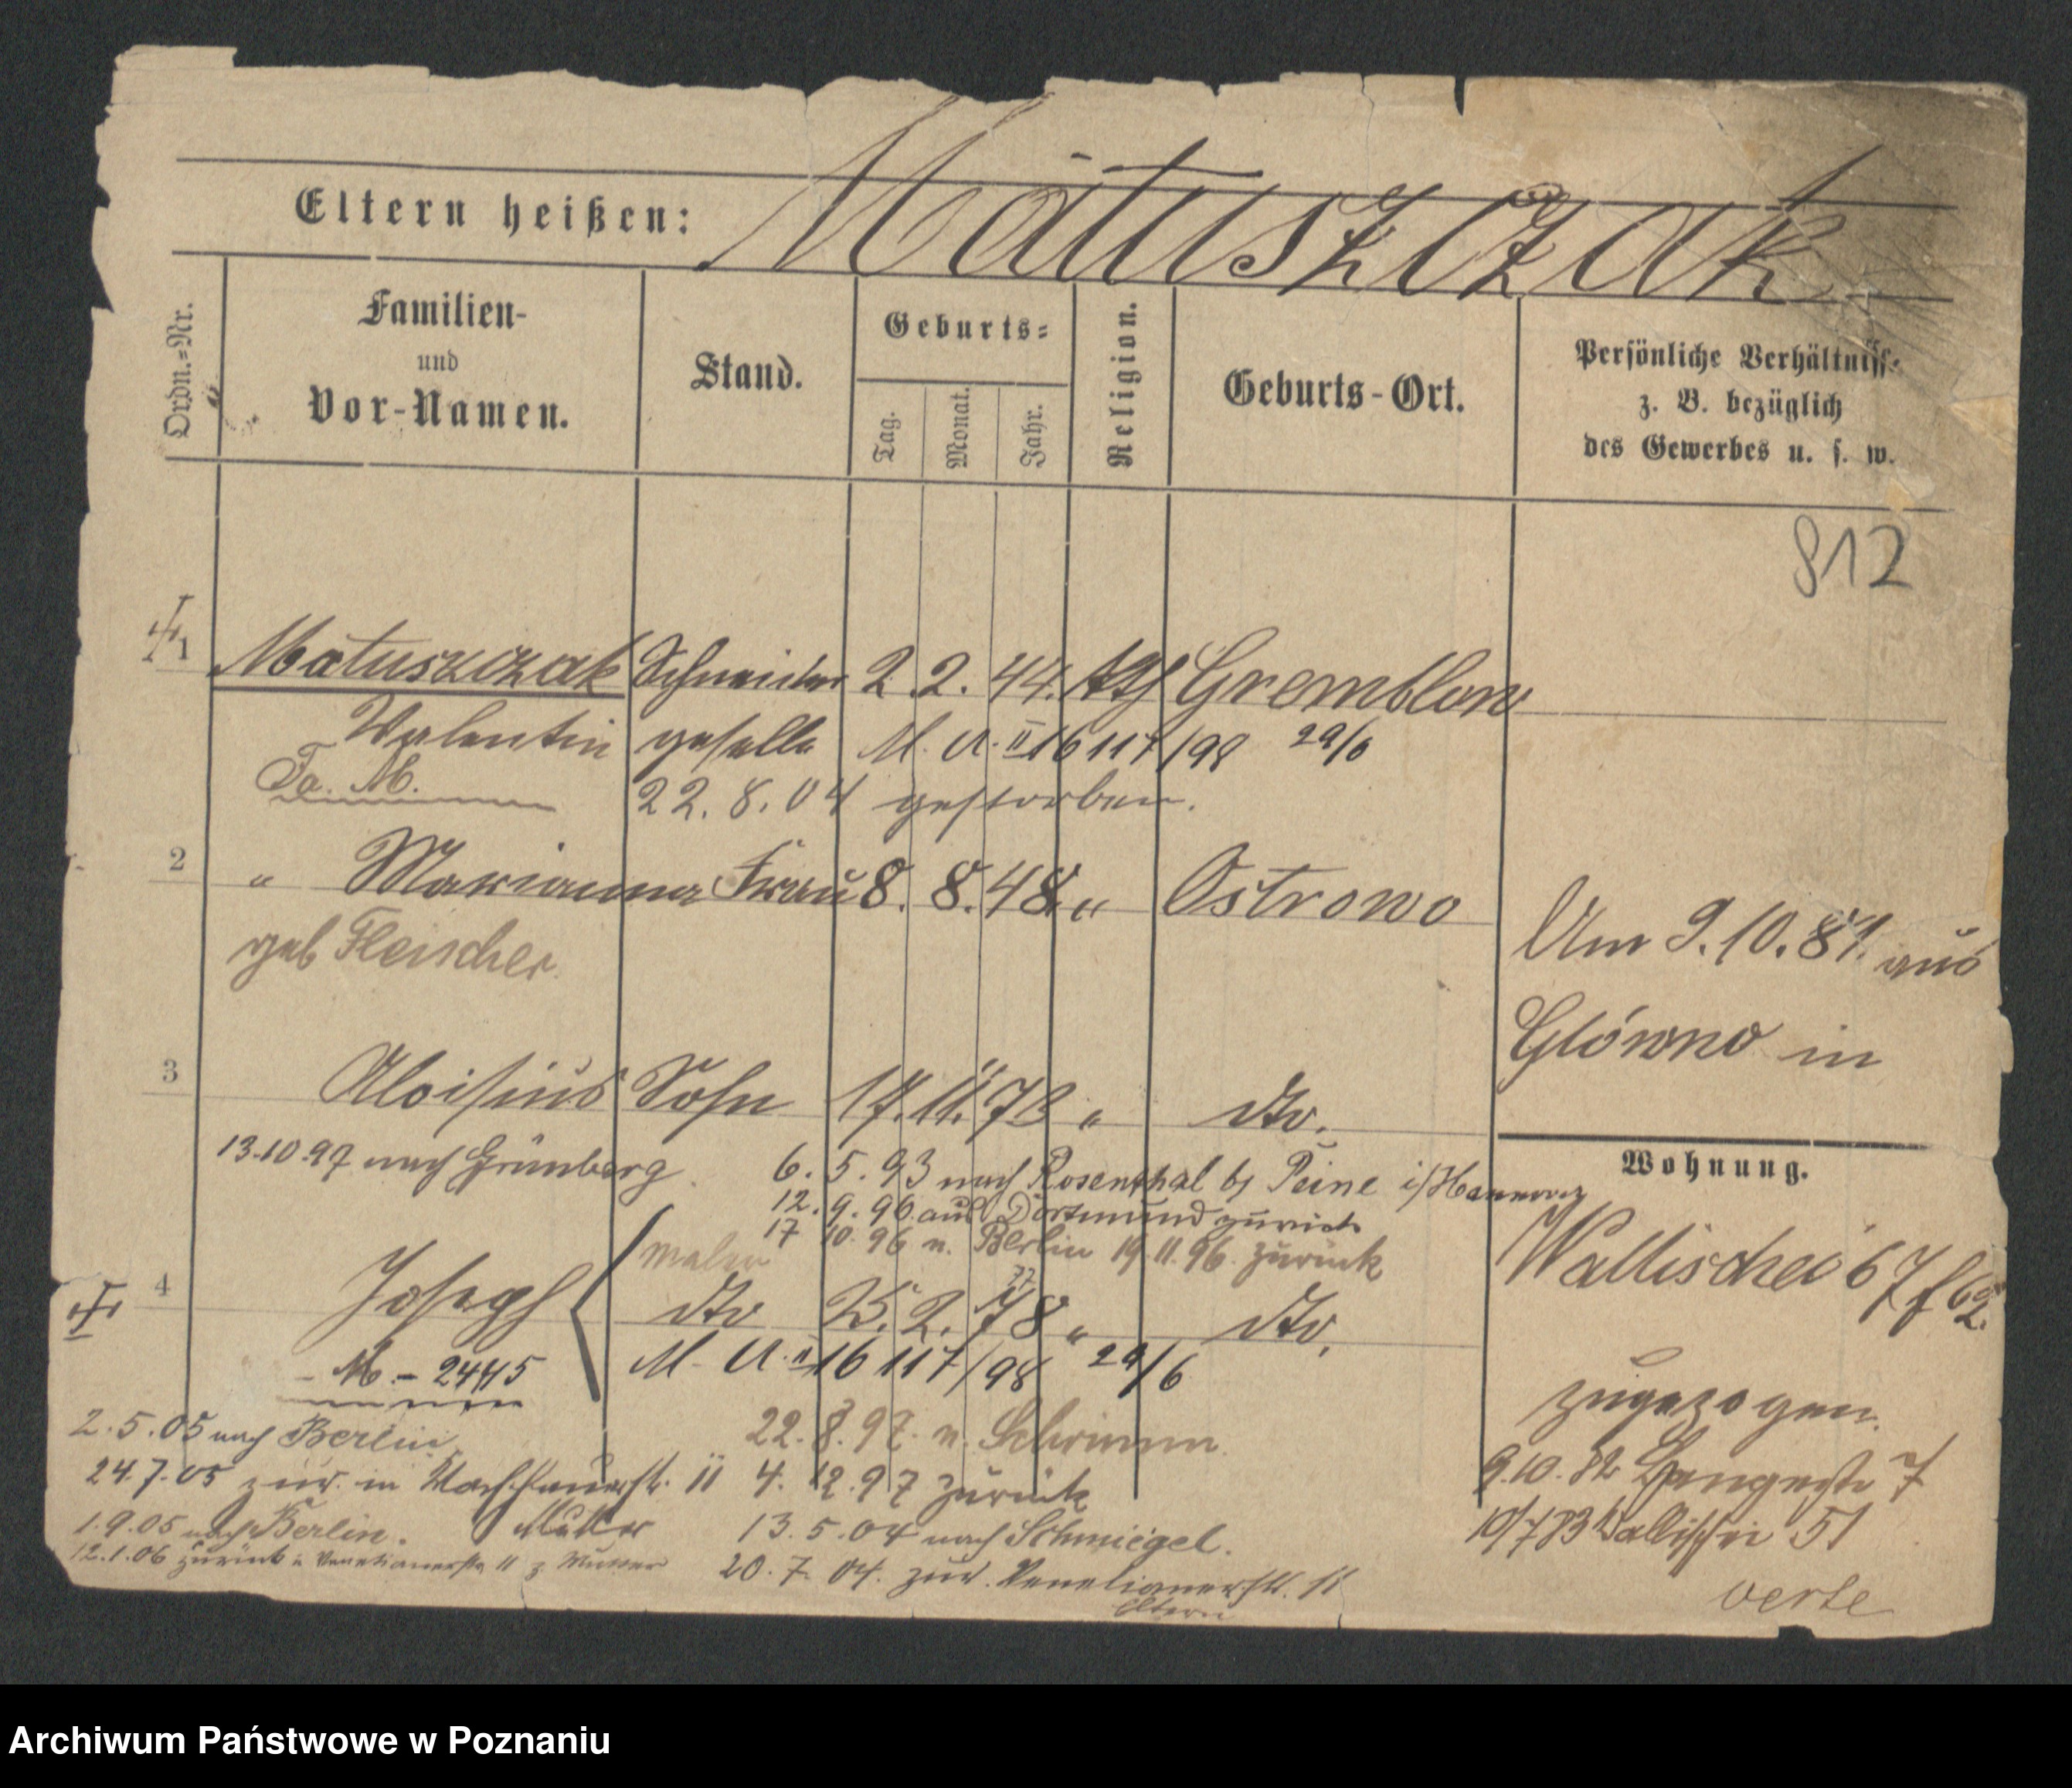 Eltern heißen: Matuszczak
Ordn.=Nr.
Familien-
und
Vor-Namen.
Stand.
Geburts=
Tag.
Monat.
Jahr.
Religion.
Geburts-Ort.
Persönliche Verhältniss-
z. B. bezüglich
des Gewerbes u. s. w.
812
1 Matuszczak Schneider 2. 2. 44. Kth Gremblow
Valentin geselle M. A. II 16117/98 29/6
Fa. M. 22. 8. 04 gestorben.
2 " Marianna Frau 8. 8. 48. " Ostrowo
geb Fleischer
Am 9.10.81. aus
Glówno in
3 Aloisius Sohn 17. 11. 73 " dto.
13.10.97 nach Grünberg. 6. 5. 93 nach Rosenthal b/ Peine i/Hannover
12. 9. 96 aus Dortmund zurück
17 10. 96 n. Berlin 19. 11. 96. zurück
Wohnung.
Wallischei 67/62.
Maler
4 Joseph dto 25. 2. 78 " dto.
77
- M. - 24445 M. A. II 16117/98 29/6
zugezogen.
2.5.05 nach Berlin 22. 8. 97. n. Schrimm.
24.7.05 zur. in 11 4. 12. 97 zurück
9.10.82 Langestr 7
1.9.05 nach Berlin. Mutter 13. 5. 04 nach Schmiegel.
10/7 83 Wallischei 51
12.1.06 zurück Venetianerstr 11 z Mutter 20. 7. 04. zur. Venetianerstr. 11
Eltern
verte
Archiwum Państwowe w Poznaniu